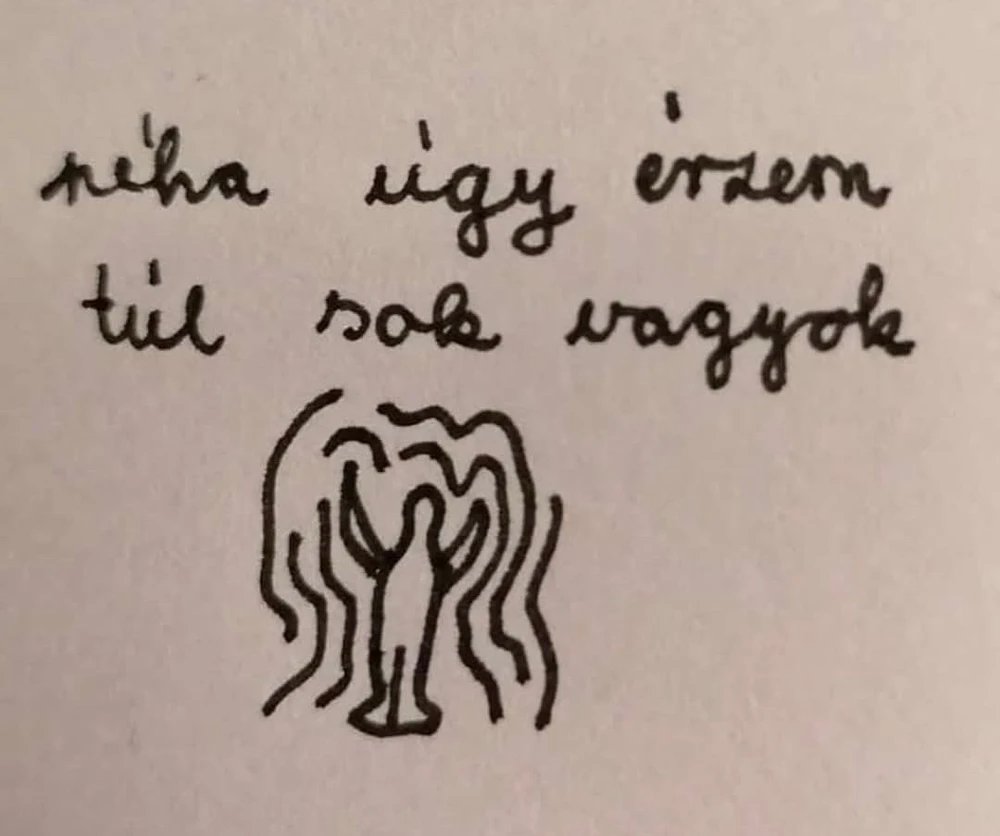 néha úgy érzem
túl sok vagyok